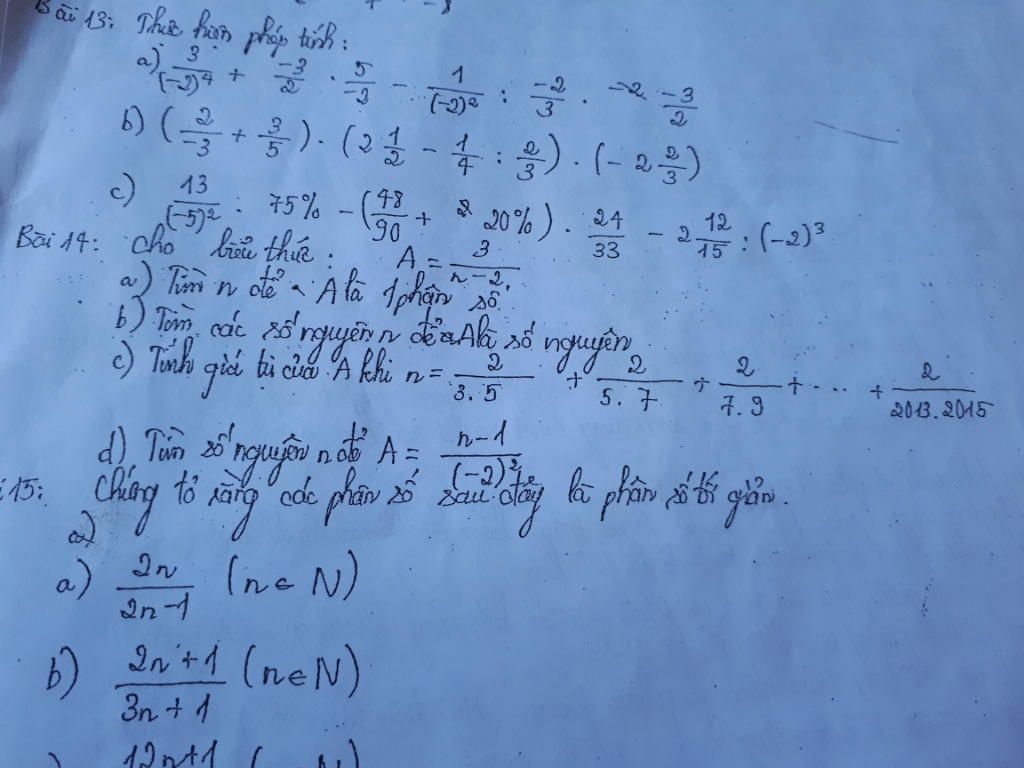 Bài 13: Thực hiện phép tính:
a) 3/(-2)^4 + -3/2 . 5/-2 - 1/(-2)^2 : -2/3 . -2 -3/2
b) (2/-3 + 3/5) . (2 1/2 - 1/4 : 2/3) . (- 2 2/3)
c) 13/(-5)^2 : 75% - (48/90 + 20%) . 24/33 - 2 12/15 : (-2)^3
Bài 14: Cho biểu thức: A = 3/n-2.
a) Tìm n để A là 1 phân số.
b) Tìm các số nguyên n để A là số nguyên
c) Tính giá trị của A khi n = 2/3.5 + 2/5.7 + 2/7.9 + .... + 2/2013.2015
d) Tìm số nguyên n để A = n-1/(-2)^2
15: Chứng tỏ rằng các phân số sau đây là phân số tối giản.
a)
a) 2n/2n-1 (n∈N)
b) 2n+1/3n+1 (n∈N)
12n+1 N)